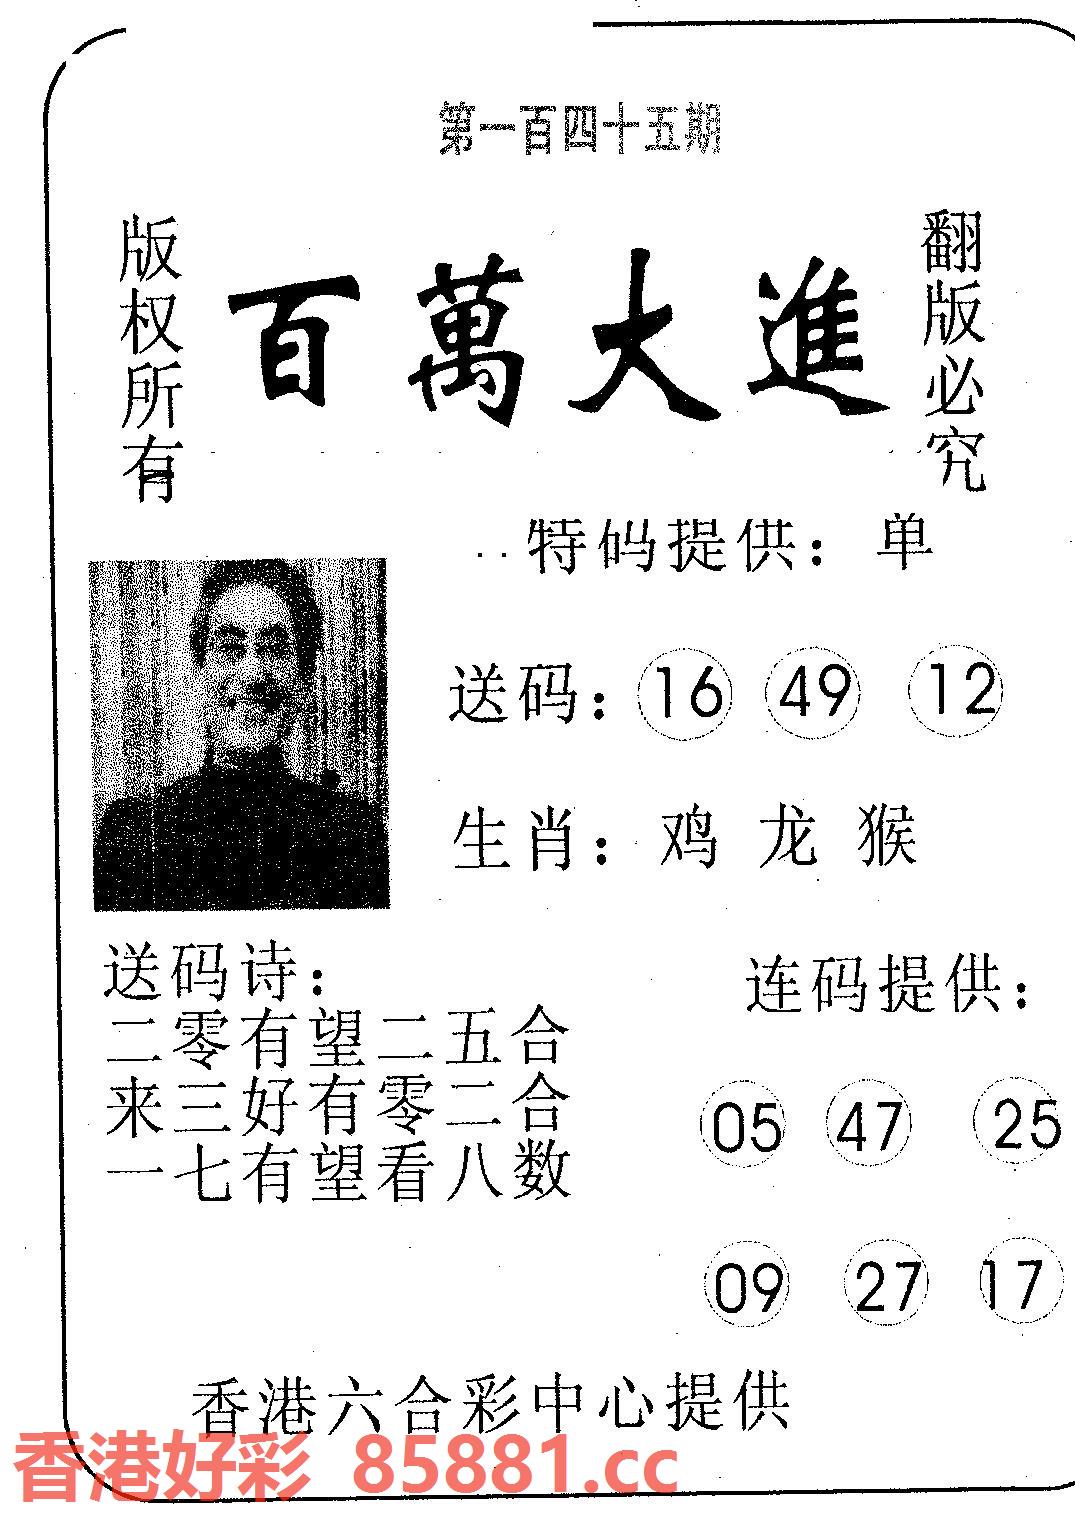 第一百四十五期
版权所有
百萬大進
翻版必究
特码提供：单
送码：16 49 12
生肖：鸡 龙 猴
送码诗：
二零有望二五合
来三好有零二合
一七有望看八数
连码提供：
05 47 25
09 27 17
香港六合彩中心提供
香港好彩 85881.cc